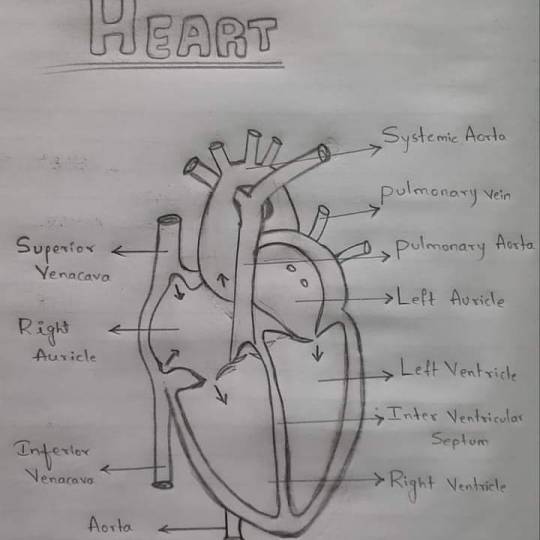 HEART
Systemic Aorta
Pulmonary Vein
Superior
Venacava
Pulmonary Aorta
Left Auricle
Right
Auricle
Left Ventricle
Inter Ventricular
Septum
Inferior
Venacava
Right Ventricle
Aorta